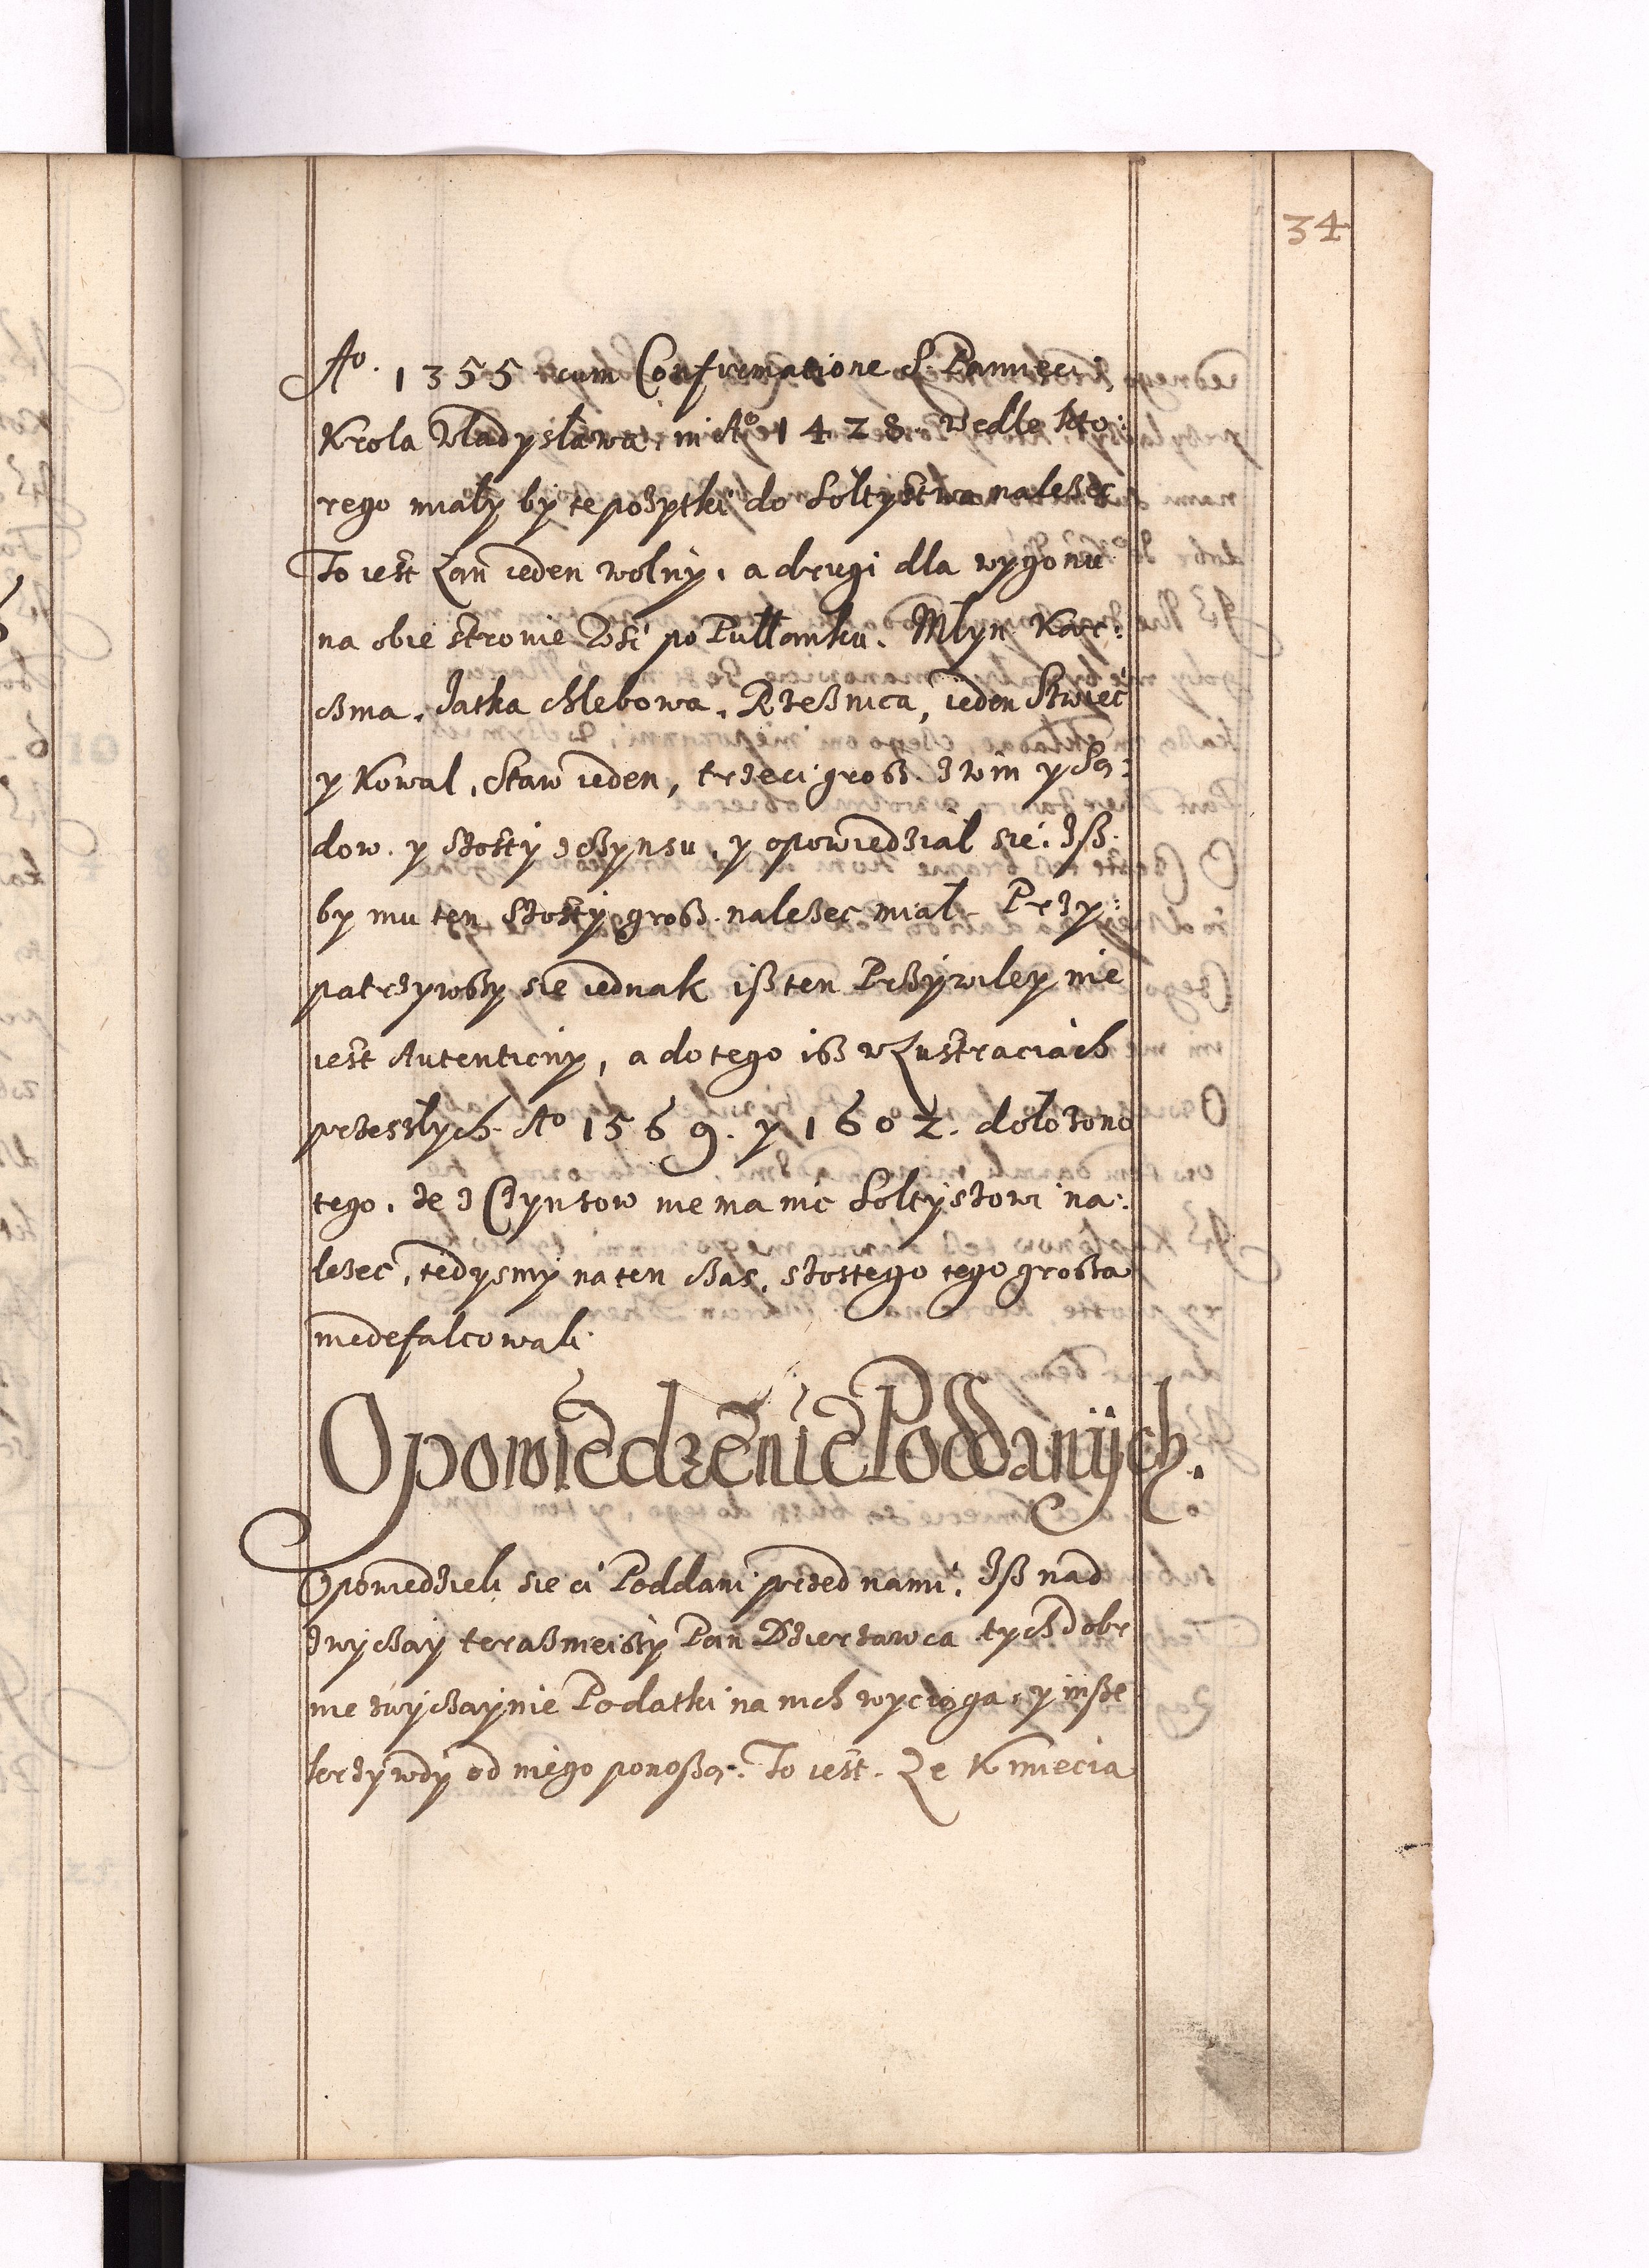 34
Aº. 1355 cum Confirmatione S. Pamięci
Krola Władysława, in Aº 1428. Wedle kto:
rego miały by te pożytki do Sołtystwa należeć
To iest Łan ieden wolny, a drugi dla wygonu
na obie stronie Wsi po Pułłanku. Młyn. Karc:
zma, Jatka chlebowa, Rzeżnica, ieden Szwiec
y Kowal, Staw ieden, trzeci grosz z win y Są:
dow. y szosty z czynszu, y opowiedział się. Isz
by mu ten Szosty grosz należec miał. Przy:
patrzywszy się iednak isz ten Przywiley nie
iest Autenticny, a do tego isz w Lustraciach
przeszłych Aº 1569. y 1602. dołożono
tego, że z Czynszow nie ma nic Sołtysowi na:
leżec, tedysmy na ten czas, szostego tego grosza
niedefalcowali.
Opowiedzenie Poddanych.
Opowiedzieli się ci Poddani przed nami, Isz nad
zwyczay terasznieiszy Pan Dzierzawca tych dobr
nie zwyczaynie Podatki na nich wyciąga, y insze
krzywdy od niego ponoszą. To iest. Że Kmiecia